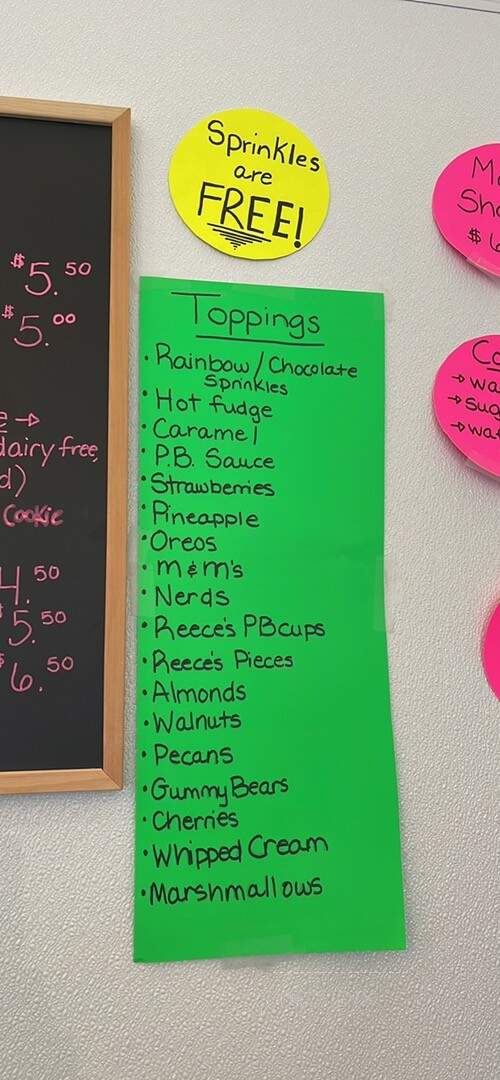 Sprinkles
are
FREE!
$5.50
$5.00
dairy free,
d)
Cookie
4.50
$5.50
$6.50
Toppings
• Rainbow/Chocolate
Sprinkles
• Hot fudge
• Caramel
• P.B. Sauce
• Strawberries
• Pineapple
• Oreos
• m&m's
• Nerds
• Reece's PB cups
• Reece's Pieces
• Almonds
• Walnuts
• Pecans
• Gummy Bears
• Cherries
• Whipped Cream
• Marshmallows
$6